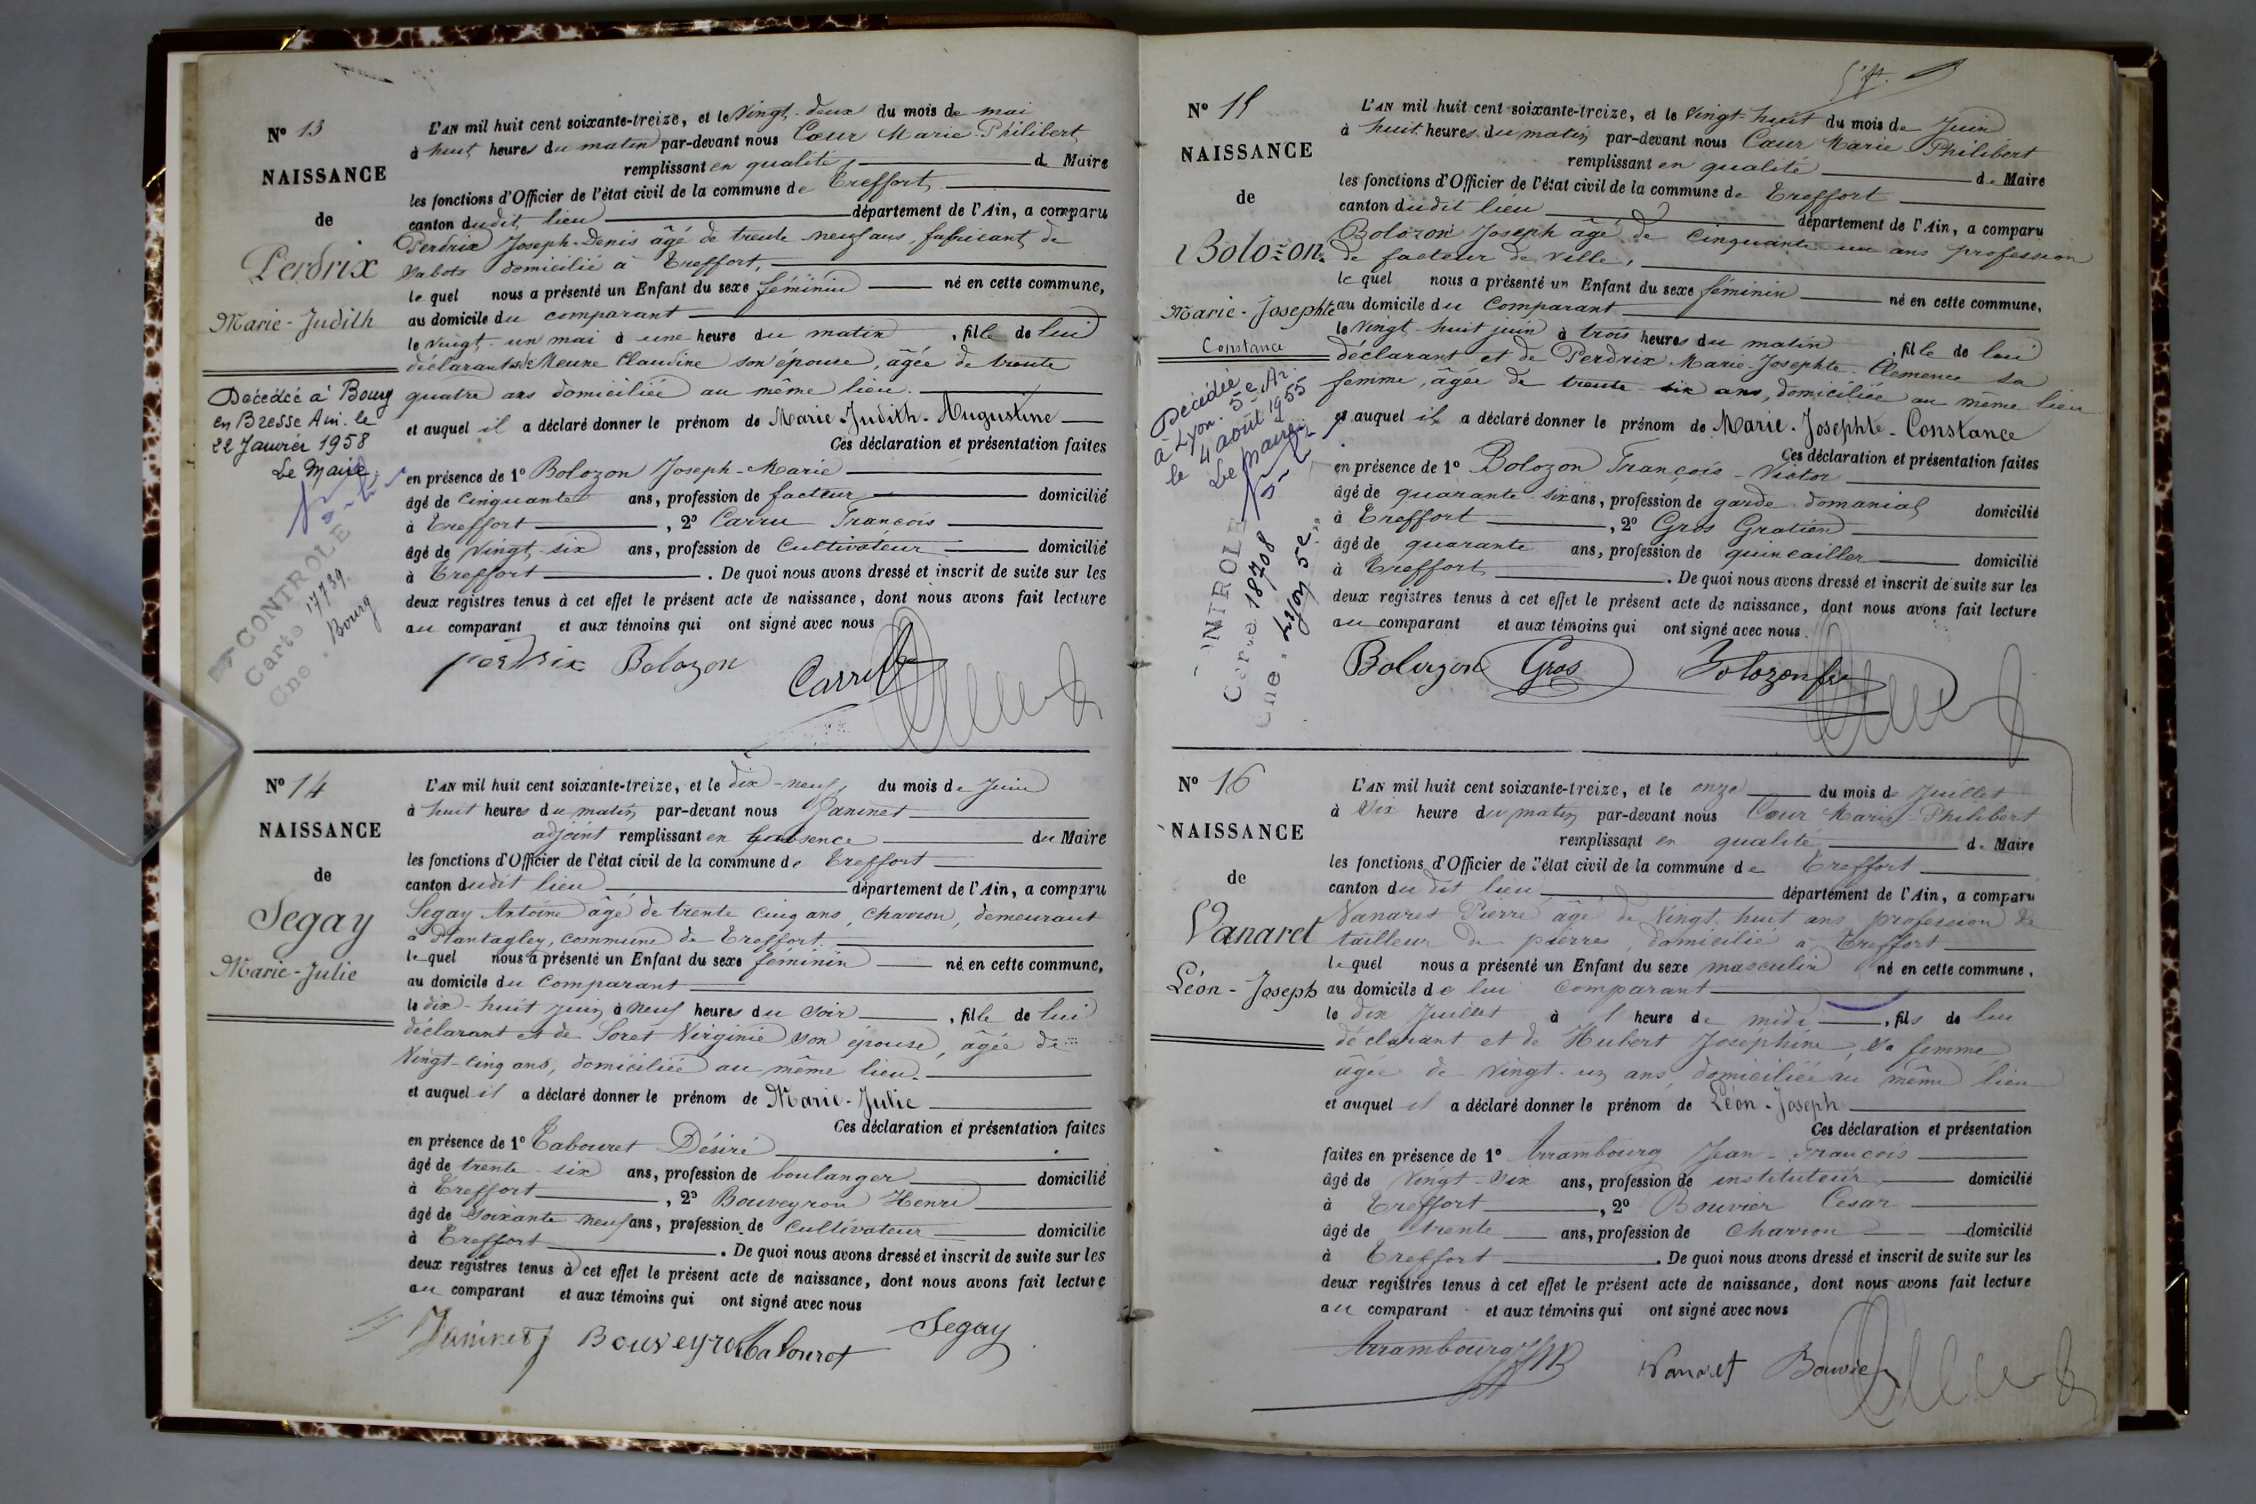 N° 13
NAISSANCE
de
Perdrix
Marie-Judith
Décédée à Bourg
en Bresse Ain le
22 Janvier 1958
Le Maire
CONTROLE
Carte 17739
Cne. Bourg
L'AN mil huit cent soixante-treize, et le Vingt-deux du mois de mai
à huit heures du matin par-devant nous Cœur Marie-Philibert
remplissant en qualité de Maire
les fonctions d'Officier de l'état civil de la commune de Treffort
canton dudit lieu département de l'Ain, a comparu
Perdrix Joseph-Denis âgé de trente neuf ans, fabricant de
sabots domicilié à Treffort,
lequel nous a présenté un Enfant du sexe féminin né en cette commune,
au domicile du comparant
le vingt-un mai à une heure du matin, fille de lui
déclarant et de Meune Claudine son épouse, âgée de trente
quatre ans domiciliée au même lieu.
et auquel il a déclaré donner le prénom de Marie-Judith-Augustine
Ces déclaration et présentation faites
en présence de 1° Bolozon Joseph-Marie
âgé de cinquante ans, profession de facteur domicilié
à Treffort, 2° Carru François
âgé de Vingt-six ans, profession de Cultivateur domicilié
à Treffort. De quoi nous avons dressé et inscrit de suite sur les
deux registres tenus à cet effet le présent acte de naissance, dont nous avons fait lecture
au comparant et aux témoins qui ont signé avec nous
perdrix Bolozon Carru
N° 14
NAISSANCE
de
Segay
Marie-Julie
L'AN mil huit cent soixante-treize, et le dix-neuf du mois de Juin
à huit heures du matin par-devant nous Janinet
adjoint remplissant en l'absence du Maire
les fonctions d'Officier de l'état civil de la commune de Treffort
canton dudit lieu département de l'Ain, a comparu
Segay Antoine âgé de trente cinq ans, charron, demeurant
à Plantagley, commune de Treffort.
lequel nous a présenté un Enfant du sexe féminin né en cette commune,
au domicile du Comparant
le dix-huit juin à neuf heures du soir, fille de lui
déclarant et de Soret Virginie son épouse, âgée de
Vingt-cinq ans, domiciliée au même lieu.
et auquel il a déclaré donner le prénom de Marie-Julie
Ces déclaration et présentation faites
en présence de 1° Tabouret Désiré
âgé de trente-six ans, profession de boulanger domicilié
à Treffort, 2° Bouveyron Henri
âgé de soixante neuf ans, profession de Cultivateur domicilié
à Treffort. De quoi nous avons dressé et inscrit de suite sur les
deux registres tenus à cet effet le présent acte de naissance, dont nous avons fait lecture
au comparant et aux témoins qui ont signé avec nous
Janinet Bouveyron Tabouret Segay
N° 15
NAISSANCE
de
Bolozon
Marie-Josephte
Constance
Décédée
à Lyon 5e Ar.
le 4 août 1955
Le Maire
NTROLE
Carte 18708
Cne. Lyon 5e
L'AN mil huit cent soixante-treize, et le Vingt-huit du mois de Juin
à huit heures du matin par-devant nous Cœur Marie-Philibert
remplissant en qualité de Maire
les fonctions d'Officier de l'état civil de la commune de Treffort
canton dudit lieu département de l'Ain, a comparu
Bolozon Joseph âgé de cinquante-un ans profession
de facteur de ville,
lequel nous a présenté un Enfant du sexe féminin né en cette commune,
au domicile du Comparant
le Vingt-huit juin à trois heures du matin, fille de lui
déclarant et de Perdrix Marie-Josephte-Clémence sa
femme, âgée de trente six ans, domiciliée au même lieu
et auquel il a déclaré donner le prénom de Marie-Josephte-Constance
Ces déclaration et présentation faites
en présence de 1° Bolozon François-Victor
âgé de quarante-six ans, profession de garde domanial domicilié
à Treffort, 2° Gros Gratien
âgé de quarante ans, profession de quincailler domicilié
à Treffort. De quoi nous avons dressé et inscrit de suite sur les
deux registres tenus à cet effet le présent acte de naissance, dont nous avons fait lecture
au comparant et aux témoins qui ont signé avec nous.
Bolozon Gros Bolozon
N° 16
NAISSANCE
de
Vanaret
Léon-Joseph
L'AN mil huit cent soixante-treize, et le onze du mois de Juillet
à Six heure du matin par-devant nous Cœur Marie-Philibert
remplissant en qualité de Maire
les fonctions d'Officier de l'état civil de la commune de Treffort
canton dudit lieu département de l'Ain, a comparu
Vanaret Pierre âgé de Vingt-huit ans profession de
tailleur de pierres, domicilié à Treffort
lequel nous a présenté un Enfant du sexe masculin né en cette commune,
au domicile de lui comparant
le dix Juillet à 1 heure de midi, fils de lui
déclarant et de Hubert Josephine, sa femme
âgée de vingt-un ans, domiciliée au même lieu
et auquel il a déclaré donner le prénom de Léon-Joseph
Ces déclaration et présentation
faites en présence de 1° Arrambourg Jean-François
âgé de Vingt-six ans, profession de instituteur domicilié
à Treffort, 2° Bouvier César
âgé de trente ans, profession de Charron domicilié
à Treffort. De quoi nous avons dressé et inscrit de suite sur les
deux registres tenus à cet effet le présent acte de naissance, dont nous avons fait lecture
au comparant et aux témoins qui ont signé avec nous
Arrambourg Vanaret Bouvier